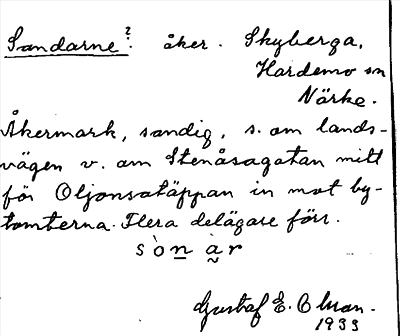 Sandarne? åker. Skyberga,
Hardemo sn
Närke.
Åkermark, sandig, s. om lands-
vägen v. om Stenåsagatan mitt
för Oljonsatäppan in mot by-
tomterna. Flera delägare förr.
sònàr
Gustaf E. Olsson.
1933